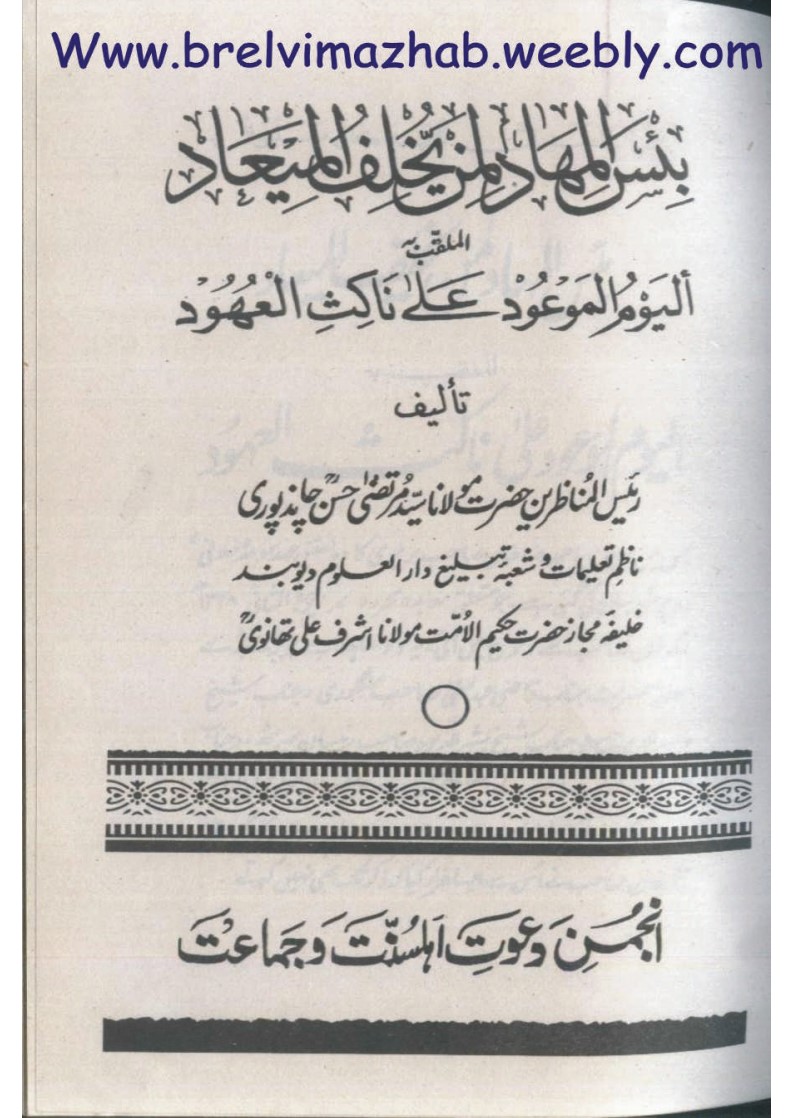 Www.brelvimazhab.weebly.com
بِئْسَ الْمِهَادُ لِمَنْ يُّخْلِفُ الْمِيْعَادْ
الملقّب بہ
أَلْيَوْمُ الْمَوْعُوْدْ عَلٰى نَاكِثِ الْعُهُوْدْ
تألیف
رئیس المُناظرین حضرت مولانا سیّد مُرتضیٰ حسن چاندپوریؒ
ناظمِ تعلیمات و شعبۂ تبلیغ دار العلوم دیوبند
خلیفہ مجاز حضرت حکیم الاُمّت مولانا اشرف علی تھانویؒ
انجمنِ دعوتِ اہلسُنّت وَجماعت